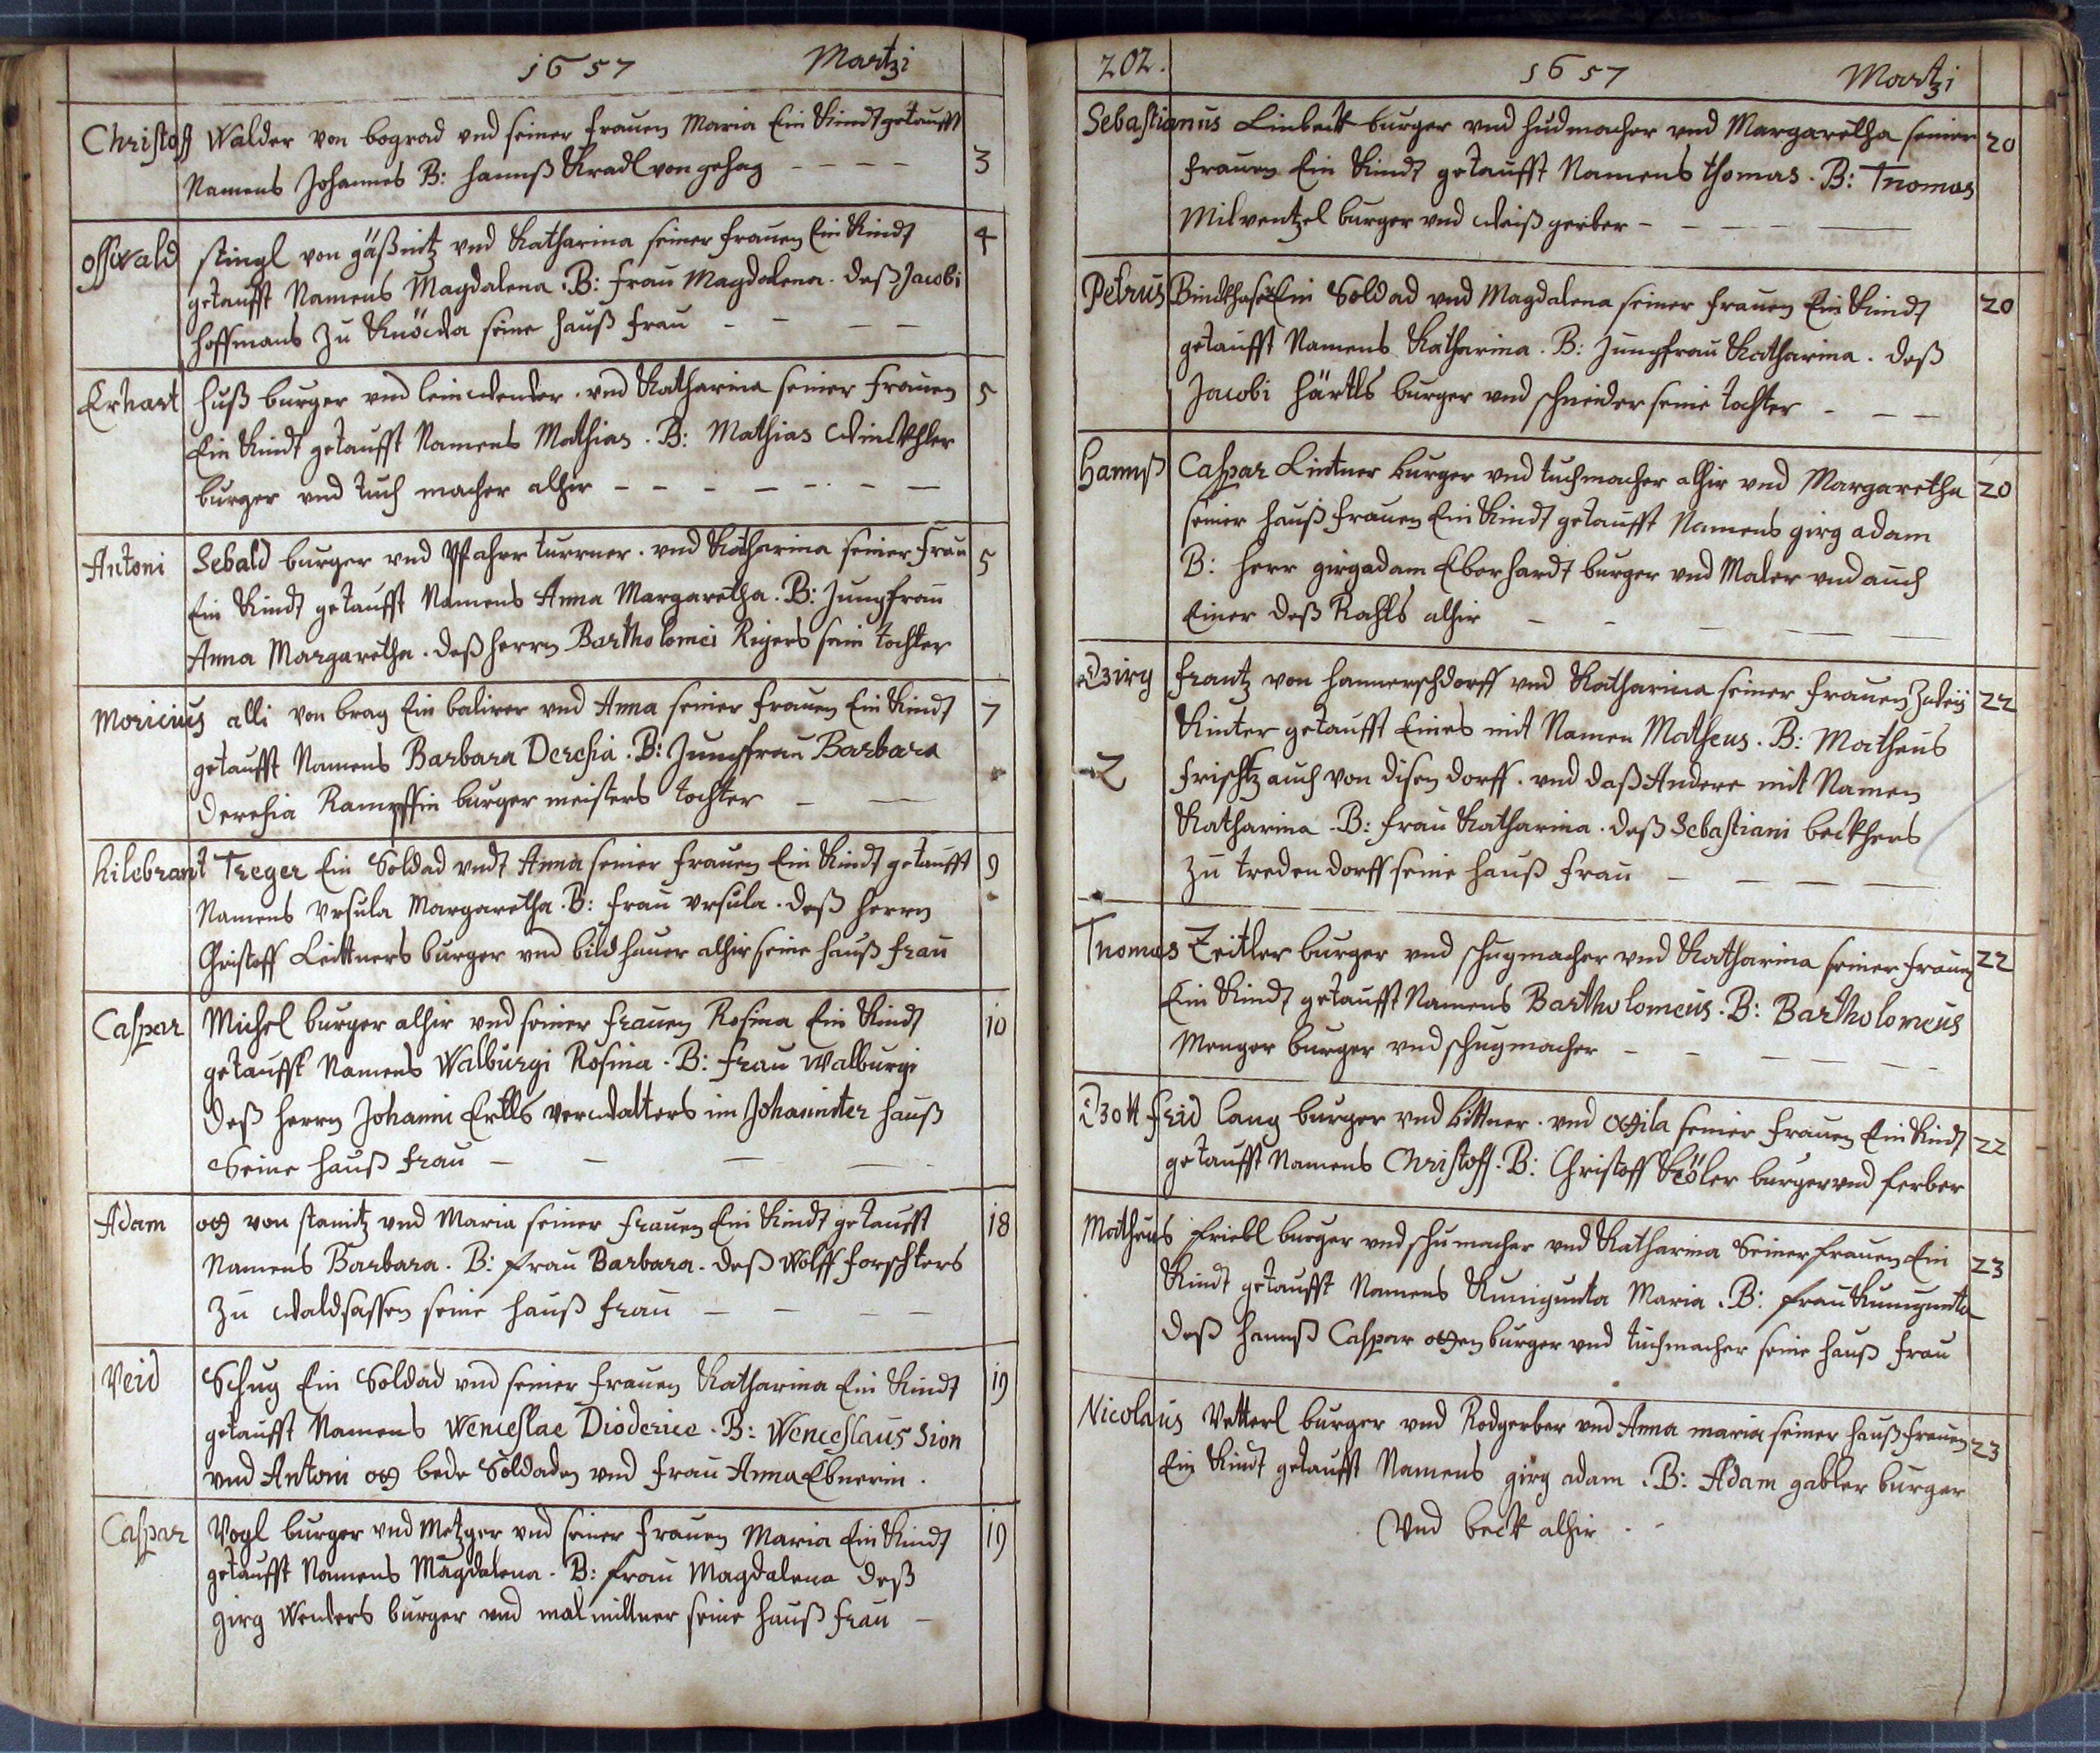 1657 Martzi
Christoff Walder von bograd vnd seiner frauen Maria Ein Kindt getaufft
Namens Johannes B: hannß Kradl von gehag - - - - 3
Osswald stingl von gäßnitz vnd Katharina seiner frauen Ein Kindt 4
getaufft Namens Magdalena . B: frau Magdalena . deß Jacobi
hoffmans zu Knöba seine hauß frau - - - -
Erhart huß burger vnd leinweber . vnd Katharina seiner frauen 5
Ein Kindt getaufft Namens Mathias . B: Mathias Winckhler
burger vnd tuch macher alhir - - - - - - -
Antoni Sebald burger vnd turrner . vnd Katharina seiner frau 5
Ein Kindt getaufft Namens Anna Margaretha . B: Jungfrau
Anna Margaretha . deß herrn Bartholomei Rigers sein tochter
Moricius alli von brag Ein balirer vnd Anna seiner frauen Ein Kindt 7
getaufft Namens Barbara Deresia . B: Jungfrau Barbara
Deresia burger meisters tochter - -
hilebrant Treger Ein Soldad vndt Anna seiner frauen Ein Kindt getaufft 9
Namens Vrsula Margaretha . B: frau Vrsula . deß herrn
Christoff Leittners burger vnd bildhauer alhir seine hauß frau
Caspar Michel burger alhir vnd seiner frauen Rosina Ein Kindt 10
getaufft Namens Walburgi Rosina . B: frau Walburgi
deß herrn Johanni Ertls verwalters im Johaniter hauß
Seine hauß frau - - - -
Adam ott von stanitz vnd Maria seiner frauen Ein Kindt getaufft 18
Namens Barbara . B: frau Barbara . deß Wolff forschters
zu waldsassen seine hauß frau - - - -
Veid Schug Ein Soldad vnd seiner frauen Katharina Ein Kindt 19
getaufft Namens Wenceslae Dioderice . B: Wenceslaus Sion
vnd Antoni ott bede Soldaden vnd frau Anna Ebnerin .
Caspar Vogl burger vnd Metzger vnd seiner frauen Maria Ein Kindt 19
getaufft Namens Magdalena . B: frau Magdalena deß
girg Wenders burger vnd malmillner seine hauß frau -
202. 1657 Martzi
Sebastianus Linbeck burger vnd hudmacher vnd Margaretha seiner 20
frauen Ein Kindt getaufft Namens thomas . B: Thomas
Milwentzel burger vnd weißgerber - - - - -
Petrus Ein Soldad vnd Magdalena seiner frauen Ein Kindt 20
getaufft Namens Katharina . B: Jungfrau Katharina . deß
Jacobi härtls burger vnd schneider seine tochter - - -
Hannß Caspar Lintner burger vnd tuchmacher alhir vnd Margaretha 20
seiner hauß frauen Ein Kindt getaufft Namens girg adam
B: herr girgadam Eberhardt burger vnd Maler vnd auch
Einer deß Rahts alhir - - - - -
Girg frantz von hannerschdorff vnd Katharina seiner frauen zwey 22
Kinter getaufft Eines mit Namen Matheus . B: Matheus
2 frischtz auch von disen dorff . vnd daß Andere mit Namen
Katharina . B: frau Katharina . deß Sebastiani beckhers
zu tredendorff seine hauß frau - - - -
Thomas Zeitler burger vnd schugmacher vnd Katharina seiner frauen 22
Ein Kindt getaufft Namens Bartholomeus . B: Bartholomeus
Menger burger vnd schugmacher - - - - -
Gottfrid lang burger vnd bittner . vnd Ottila seiner frauen Ein Kindt 22
getaufft Namens Christoff . B: Christoff burger vnd ferber
Matheus friebl burger vnd schumacher vnd Katharina Seiner frauen Ein 23
Kindt getaufft Namens Kunigunta Maria . B: frau Kunigunta
deß hannß Caspar otten burger vnd tuchmacher seine hauß frau
Nicolaus Vetterl burger vnd Rodgerber vnd Anna maria seiner hauß frauen 23
Ein Kindt getaufft Namens girg adam . B: Adam gabler burger
Vnd beck alhir . -